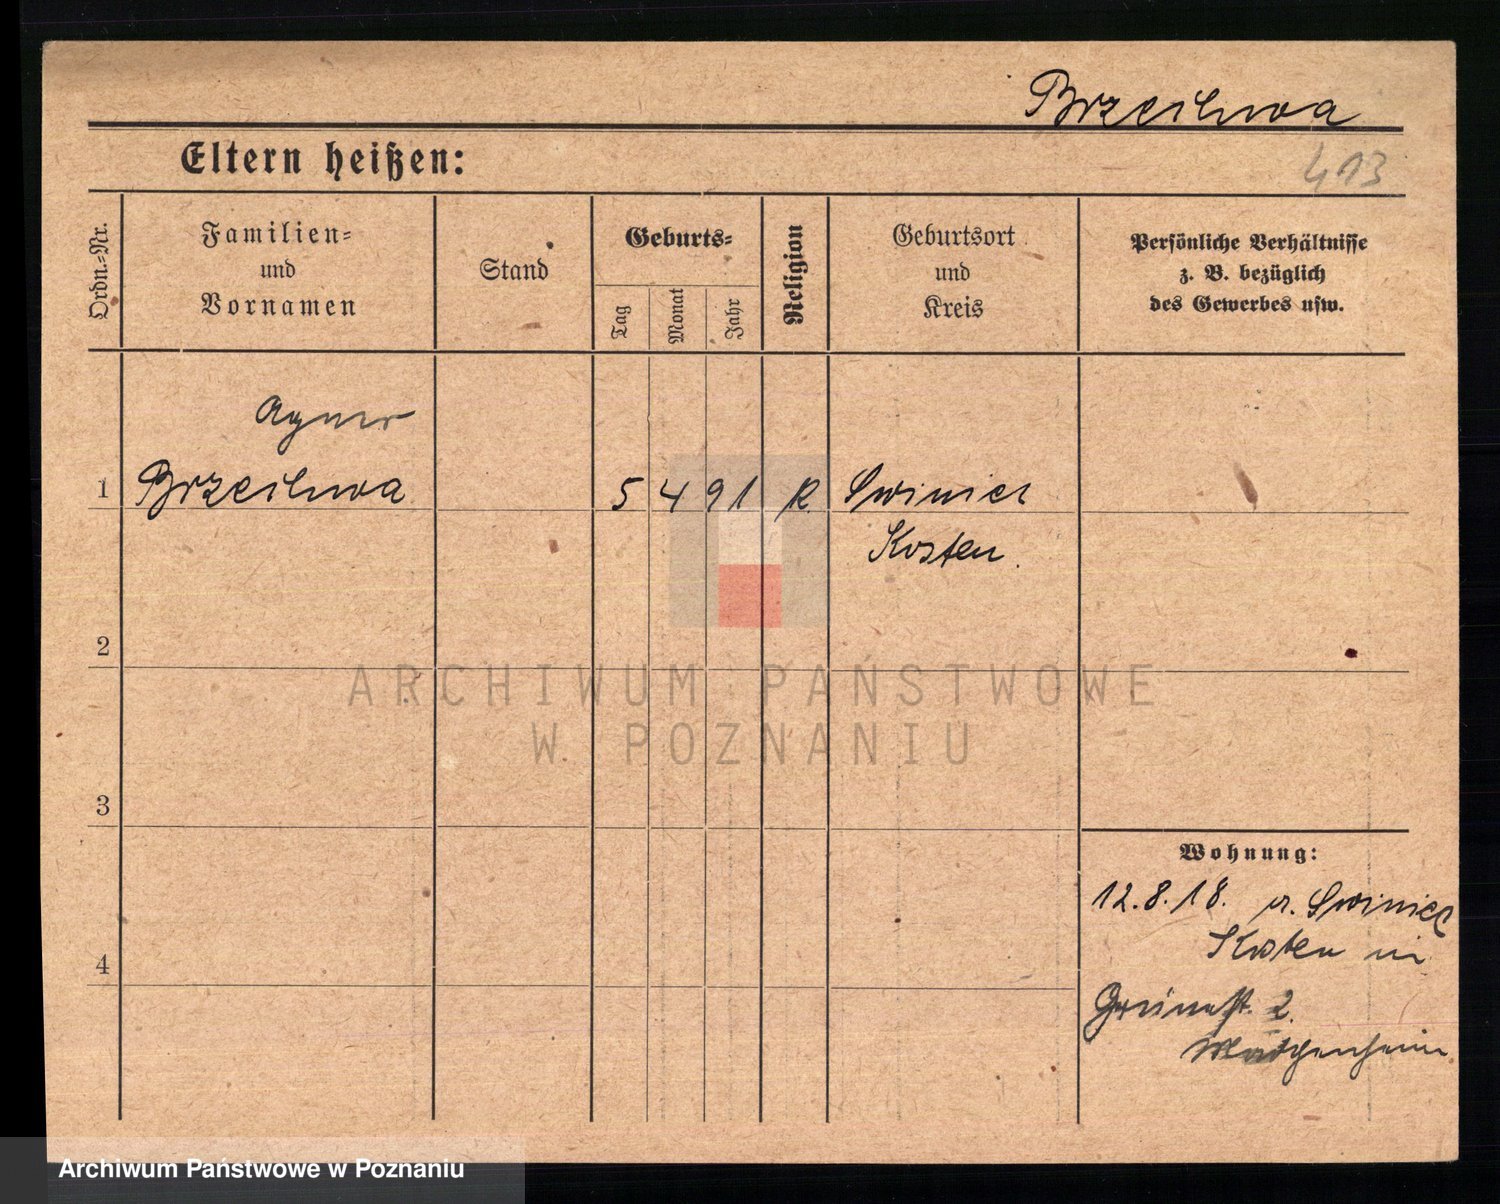 Brzechwa
413
Eltern heißen:
Ordn.-Nr.
Familien-
und
Vornamen
Stand
Geburts-
Tag
Monat
Jahr
Religion
Geburtsort
und
Kreis
Persönliche Verhältnisse
z. B. bezüglich
des Gewerbes usw.
Agnes
1 Brzechwa 5 4 91 k. Swiniec
Kosten.
2
3
4
Wohnung:
12.8.18. v. Swiniec
Kosten in
Grünest. 2.
Mädchenheim
ARCHIWUM PAŃSTWOWE
W POZNANIU
Archiwum Państwowe w Poznaniu